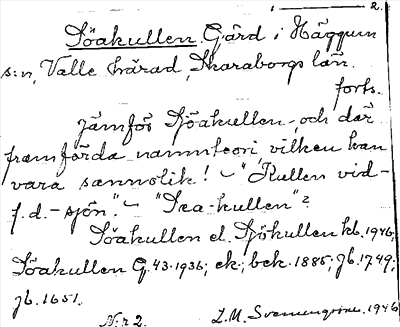 1 — 2.
Söakullen Gård i Häggum
s:n, Valle härad, Skaraborgs län.
forts.
Jämför Sjöakullen, och där
framförda namnteori, vilken kan
vara sannolik! — "Kullen vid-
f.d.-sjön". — "Sea-kullen"?
Söakullen el. Sjökullen kb. 1946;
Söakullen G. 43. 1936; ek; bck. 1885; jb. 1749;
jb. 1651.
N:r 2. L.M. 1946